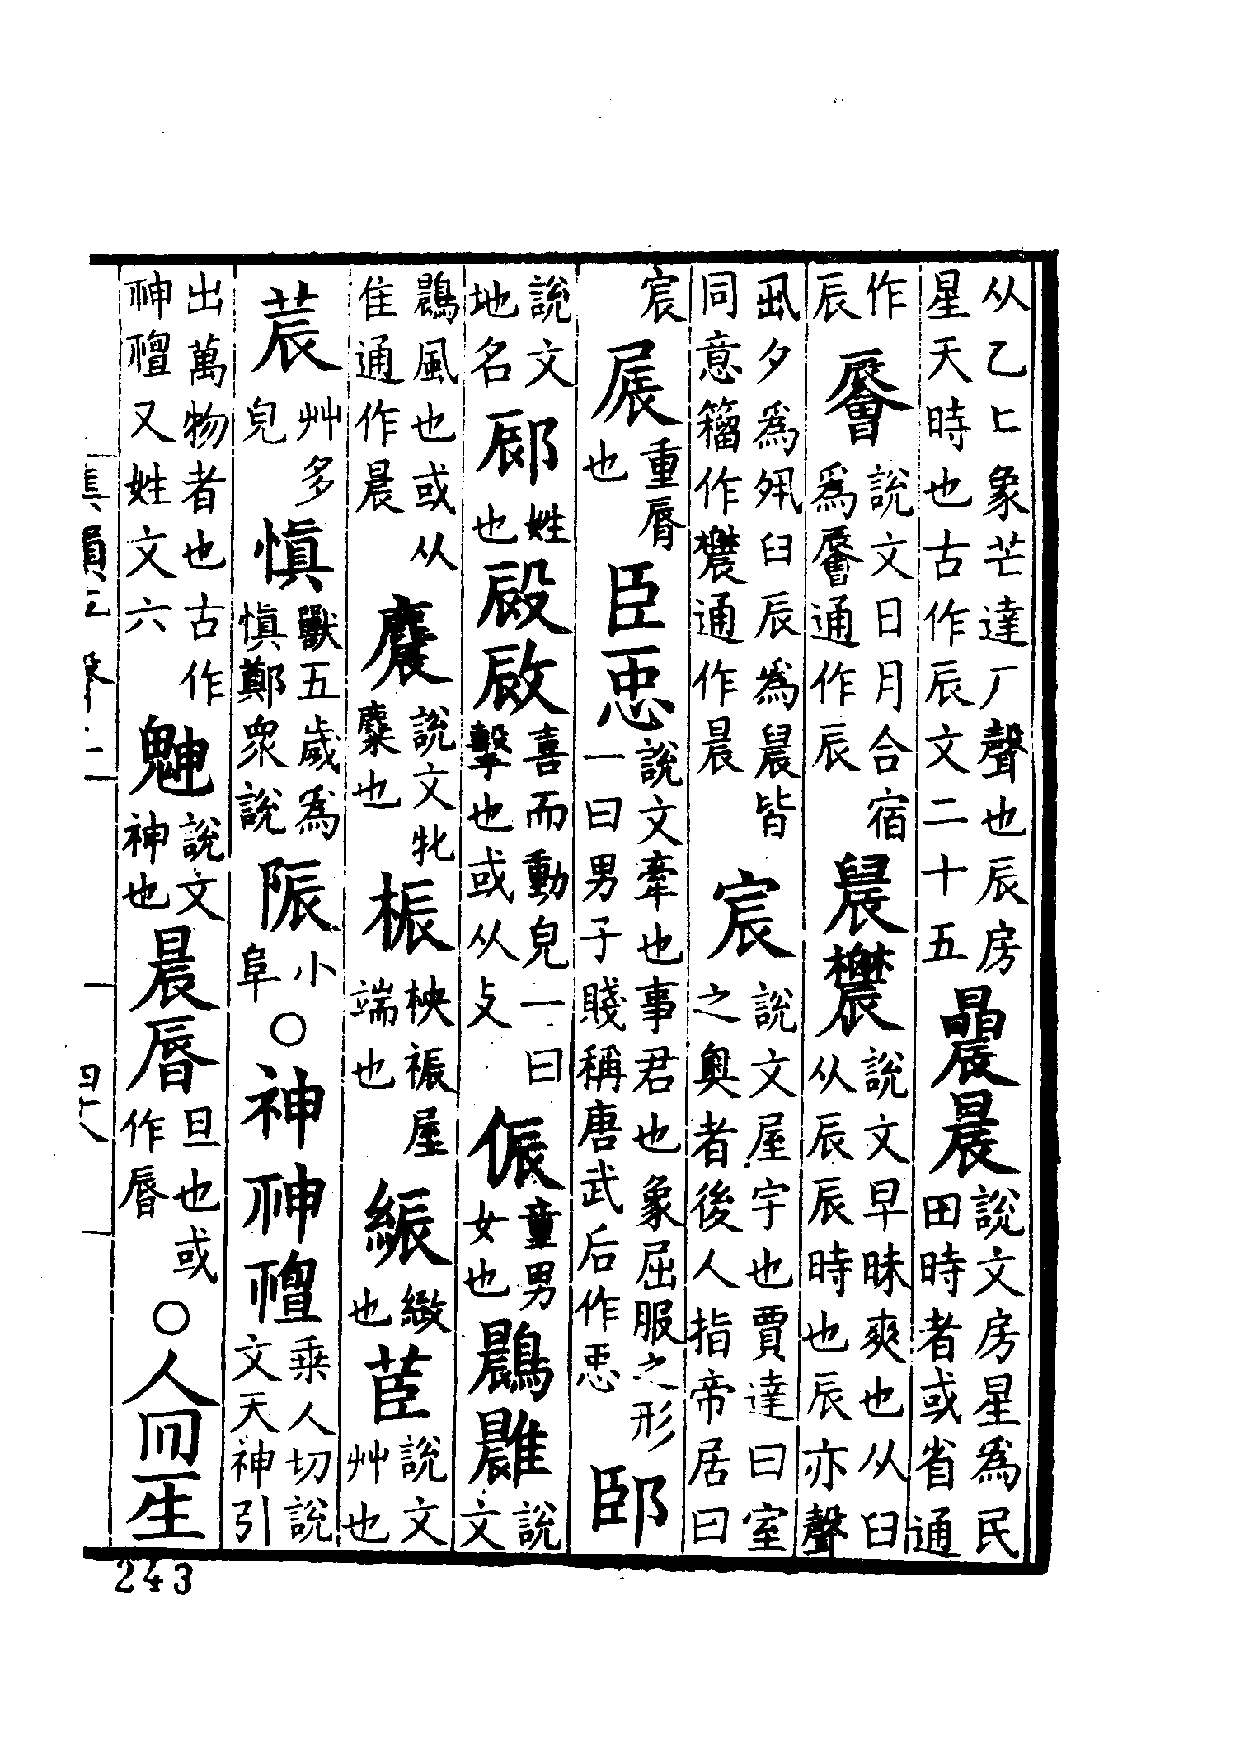 从乙匕象芒達厂聲也辰房星天時也古作辰文二十五曟晨說文房星爲民田時者或省通
作辰㬐說文日月合宿爲㬐通作辰晨說文早昧爽也从臼从辰辰時也辰亦聲
夙夕爲夙臼辰爲晨皆同意籀作通作晨宸說文屋宇也賈逵曰室之奧者後人指帝居曰
宸㞡重脣也臣𢘑說文牽也事君也象屈服之形一曰男子賤稱唐武后作𢘑邸
說文地名郂姓也㲀喜而動皃一曰擊也或从攴侲童男女也鷐說文
鷐風也或从隹通作晨麎說文牝麋也桭柍桭屋端也緻也茞說文艸也
莀艸多皃慎獸五歲爲慎鄭衆說陙小阜○神䄠乘人切說文天神引
出萬物者也古作神䄠又姓文六䰠說文神也晨㫳旦也或作㫳○人𤯔
集韻 聲二
243